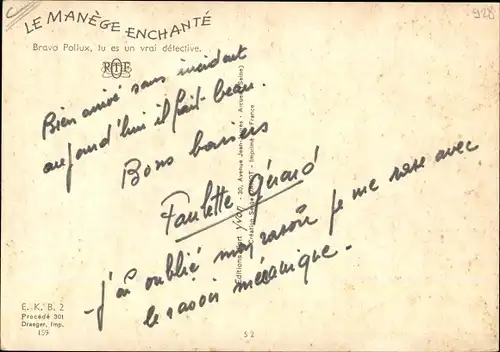 LE MANÈGE ENCHANTÉ
928
Bravo Pollux, tu es un vrai détective.
Bien arrivé sans incident
aujourd'hui il fait beau.
Bons baisers
Paulette Gérard
- j'ai oublié mon rasoir je me rase avec
le rasoir mécanique.
Editions d'Art YVON - 30, Avenue Jean-Jaurès - Arcueil (Seine)
Imprimé en France
E. K. B. 2
Procédé 301
Draeger, Imp.
159
S 2